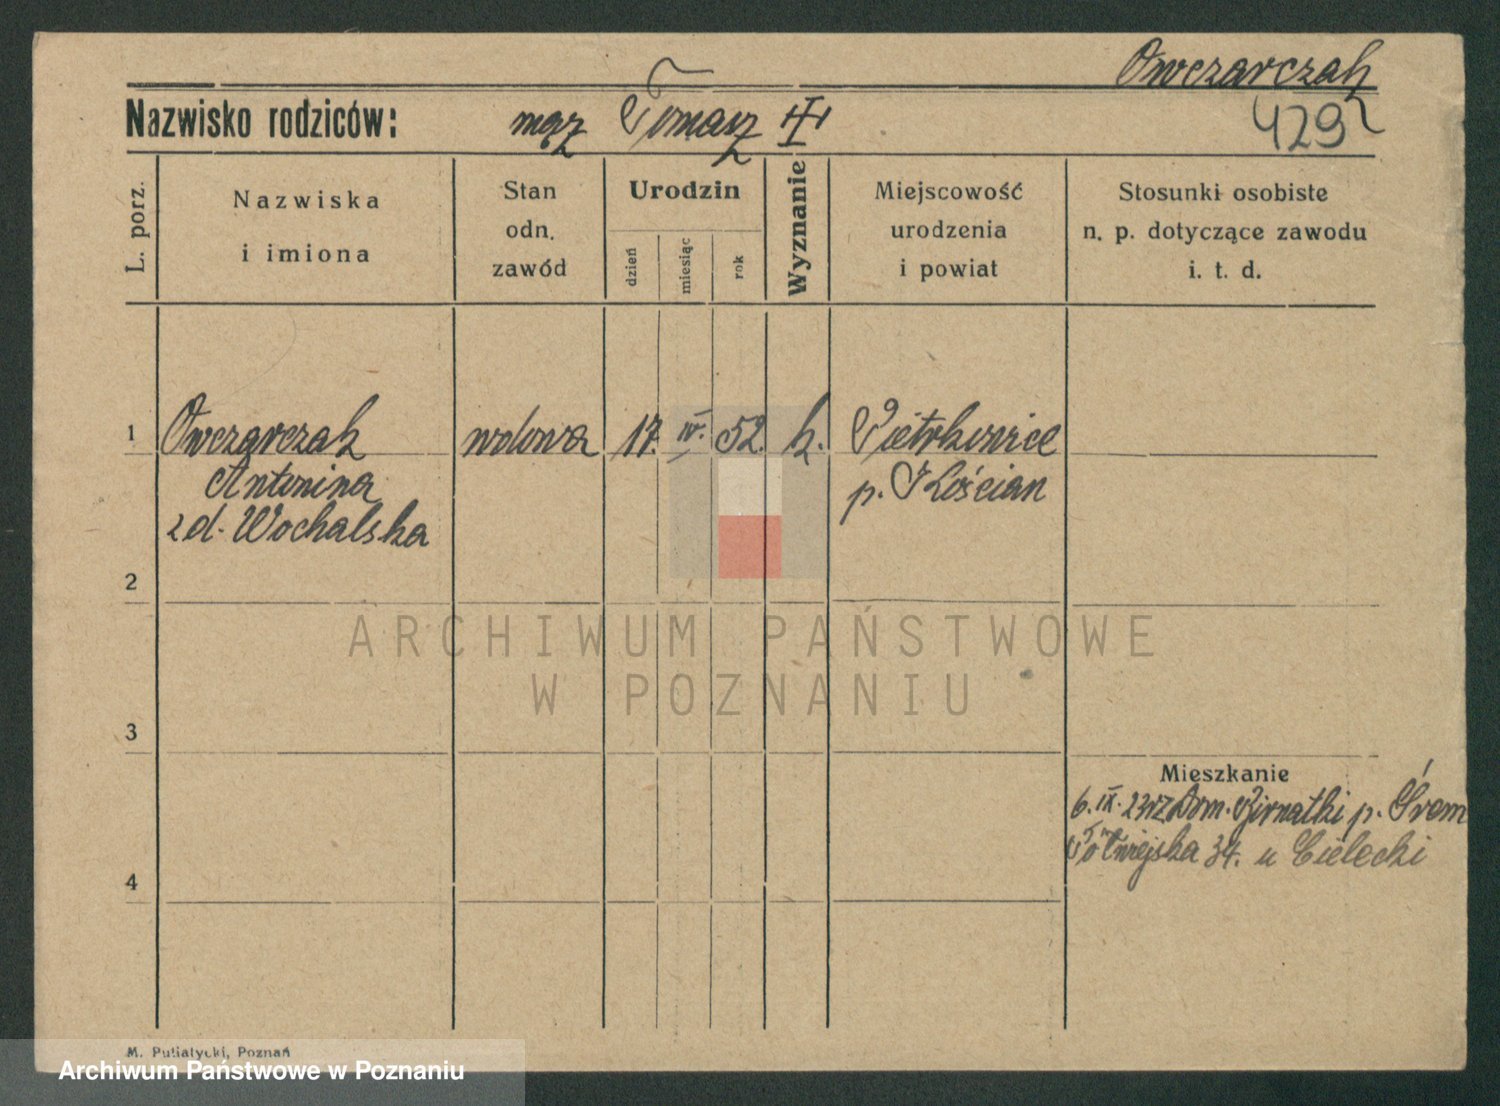 Owczarczak
Nazwisko rodziców: mąż Tomasz
4292
L. porz.
Nazwiska
i imiona
Stan
odn.
zawód
Urodzin
dzień
miesiąc
rok
Wyznanie
Miejscowość
urodzenia
i powiat
Stosunki osobiste
n. p. dotyczące zawodu
i. t. d.
1 Owczarczak wdowa 17. IV. 52. k. Pietrkowice
Antonina p. Kościan
zd. Wochalska
2
ARCHIWUM PAŃSTWOWE
W POZNANIU
3
Mieszkanie
6. IX. 23 rz Dom. p. Śrem
34. u Cielecki
4
M. Putiatycki, Poznań
Archiwum Państwowe w Poznaniu